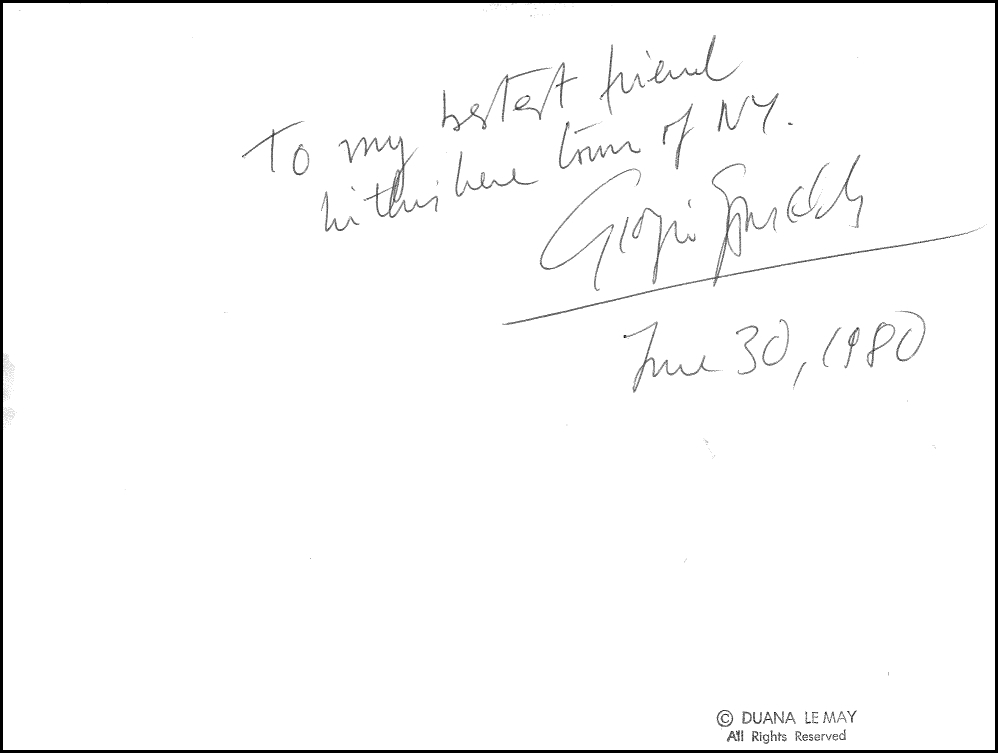 To my bestest friend
in this here town of NY.
Giorgio
June 30, 1980
© DUANA LE MAY
All Rights Reserved